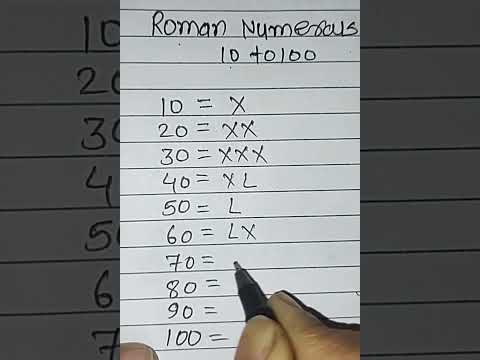 Roman Numerals
10 to 100
10 = X
20 = XX
30 = XXX
40 = XL
50 = L
60 = LX
70 =
80 =
90 =
100 =